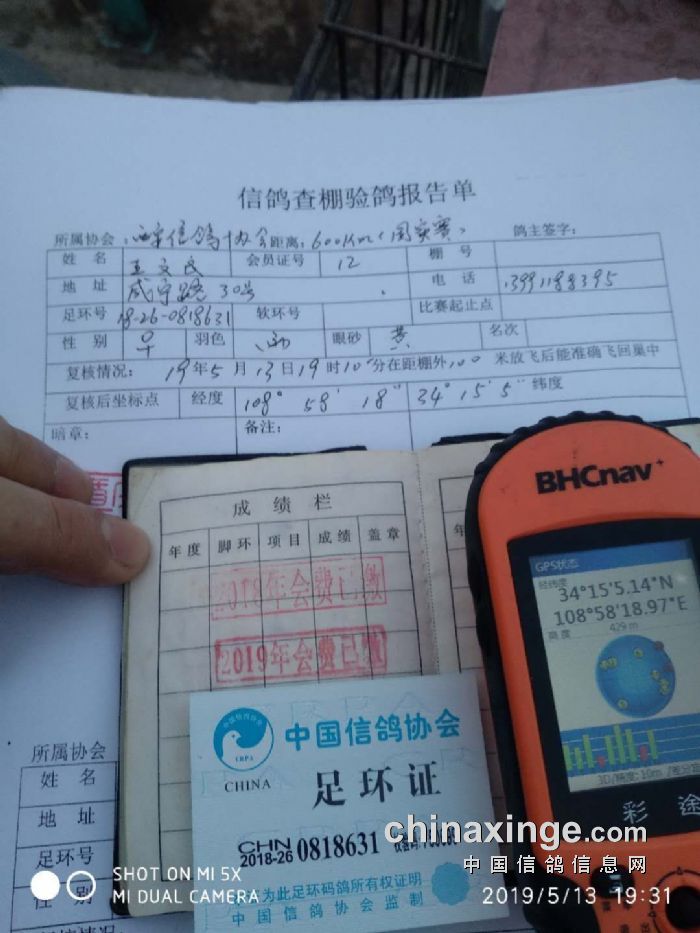 信鸽查棚验鸽报告单
所属协会: 西安信鸽协会 距离: 600Km(国家赛) 鸽主签字:
姓 名 王文民 会员证号 12 棚 号
地 址 咸宁路30号 电 话 13991188395
足环号 18-26-0818631 软环号 比赛起止点
性 别 羽色 雨 眼砂 黄 名次
复核情况: 19年5月13日19时10分在距棚外100米放飞后能准确飞回巢中
复核后坐标点 经度 108° 58' 18" 34° 15' 5" 纬度
暗章: 备注:
成绩栏
年度 脚环 项目 成绩 盖章
年
2018年会费已缴
2019年会费已缴
BHCnav
GPS状态
经纬度
34°15'5.14"N
108°58'18.97"E
高度 429 m
3D/精度: 10m /差分
彩 途
所属协会
姓 名
地 址
足环号
性 别
中国信鸽协会
CRPA
CHINA
足环证
CHN
2018-26 0818631
为此足环码鸽所有权证明
中国信鸽协会监制
chinaxinge.com
中国信鸽信息网
SHOT ON MI 5X
MI DUAL CAMERA
2019/5/13 19:31